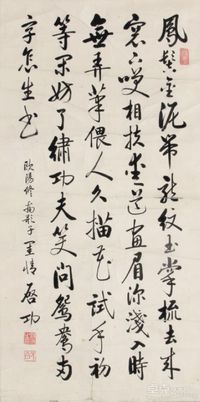 鳳髻金泥帶龍紋玉掌梳去來
窗下咲相扶愛道畫眉深淺入時
無弄筆偎人久描花試手初
等閑妨了繡功夫笑問鴛鴦兩
字怎生書
歐陽修南歌子 閨情 啓功